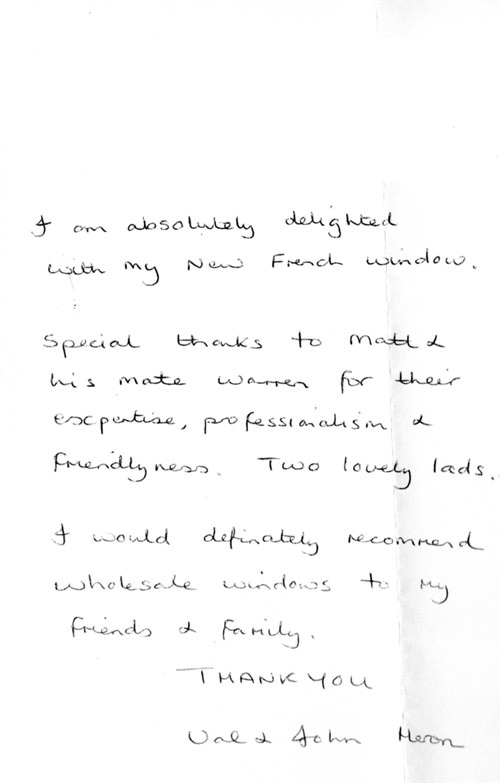 I am absolutely delighted
with my New French window.
Special thanks to Matt &
his mate Warren for their
excpertise, professionalism &
Friendlyness. Two lovely lads.
I would definately recommend
wholesale windows to my
friends & family.
THANK YOU
Val & John Heron